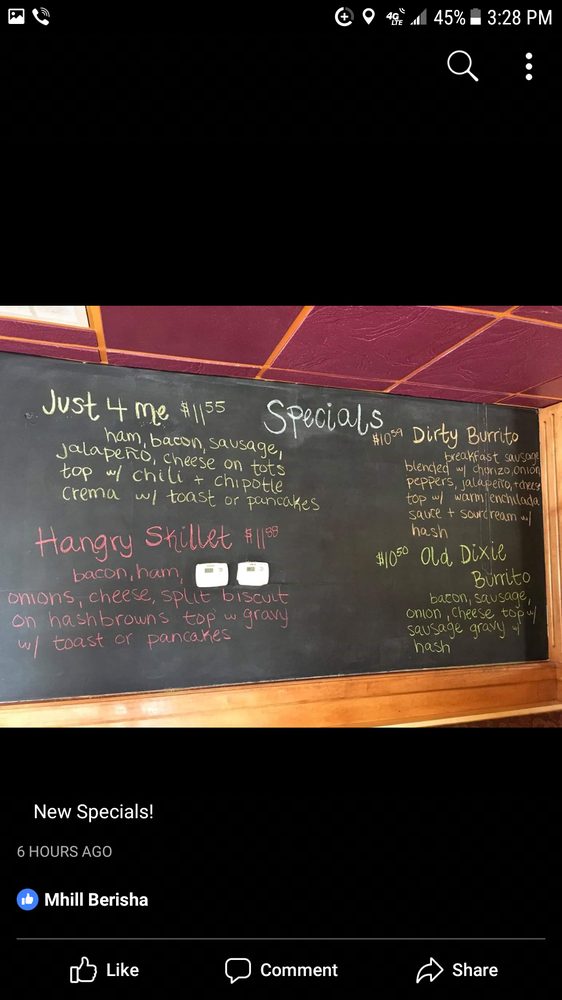 4G LTE 45% 3:28 PM
Specials
Just 4 Me $11.55
ham, bacon, sausage,
jalapeño, cheese on tots
top w/ chili + chipotle
crema w/ toast or pancakes
Hangry Skillet $11.55
bacon, ham,
onions, cheese, split biscuit
on hashbrowns top w gravy
w/ toast or pancakes
$10.59 Dirty Burrito
breakfast sausage
blended w/ chorizo, onion
peppers, jalapeño, + cheese
top w/ warm enchilada
sauce + sourcream w/
hash
$10.50 Old Dixie
Burrito
bacon, sausage,
onion, cheese top w/
sausage gravy w/
hash
New Specials!
6 HOURS AGO
Mhill Berisha
Like Comment Share